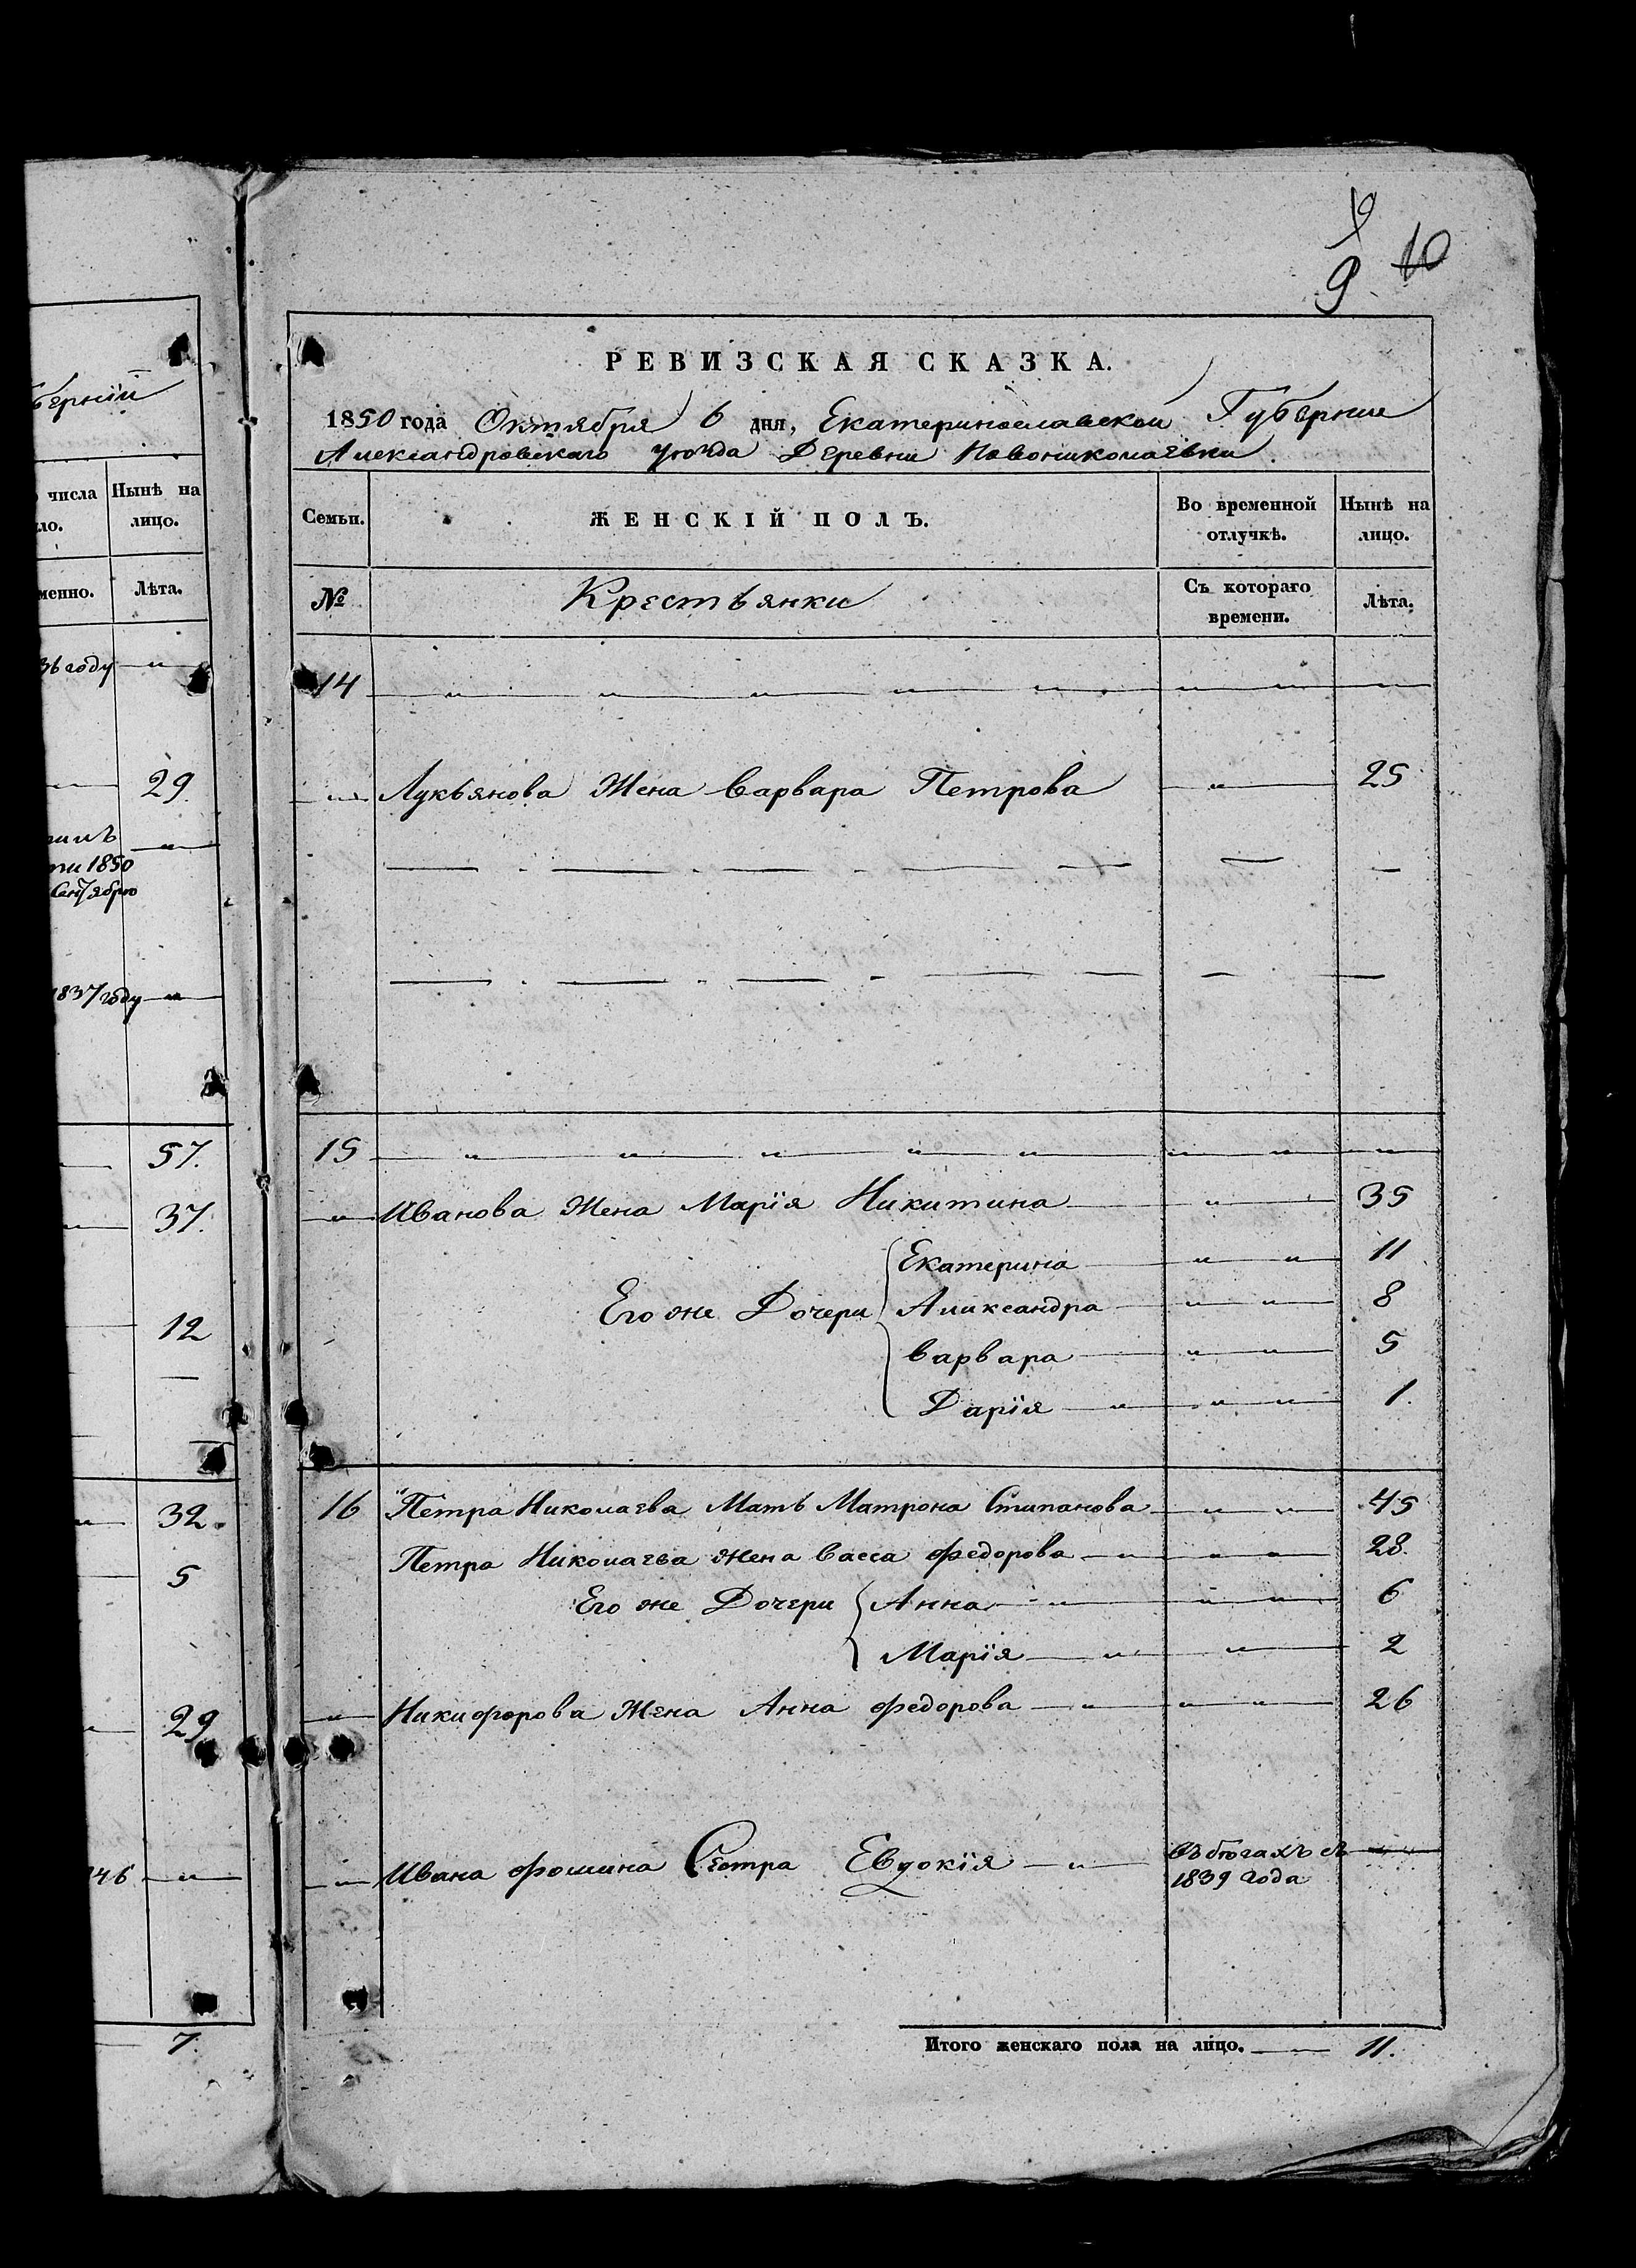 9
9. 10
РЕВИЗСКАЯ СКАЗКА.
1850 года Октября 6 дня, Екатеринославской Губернии
Александровскаго уѣзда Деревни Новониколаевки.
Семьи. ЖЕНСКІЙ ПОЛЪ. Во временной отлучкѣ. Нынѣ на лицо.
№ Крестьянки Съ котораго времени. Лѣта.
14 — " — " — " — " — " — " — " — " —
— " — Лукьянова Жена Варвара Петрова — " — 25
15 — " — " — " — " — " — " — " — " —
— " — Иванова Жена Марія Никитина — " — 35
Екатерина — " — " — 11
Его же Дочери Александра — " — " — 8
Варвара — " — " — 5
Дарія — " — " — " — 1.
16 Петра Николаева Мать Матрона Стипанова — " — " — 45
Петра Николаева жена Васса Федорова — " — " — " — 28.
Его же Дочери Анна — " — " — " — 6
Марія — " — " — 2
— " — Никифорова Жена Анна Федорова — " — " — " — 26
— " — Ивана Фомина Сестра Евдокія — " — Въ бѣгахъ съ
1839 года
Итого женскаго пола на лицо. — 11.
берній
числа
ло. Нынѣ на лицо.
менно. Лѣта.
36 году — " —
29.
ти 1850 — " —
Сентября
1837 году — " —
57.
37.
12
32.
5
29
846 — " —
7.